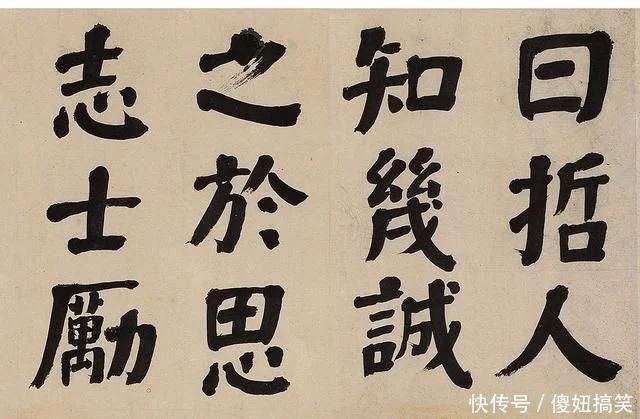 曰哲人
知幾誠
之於思
志士勵
快传号/傻妞搞笑